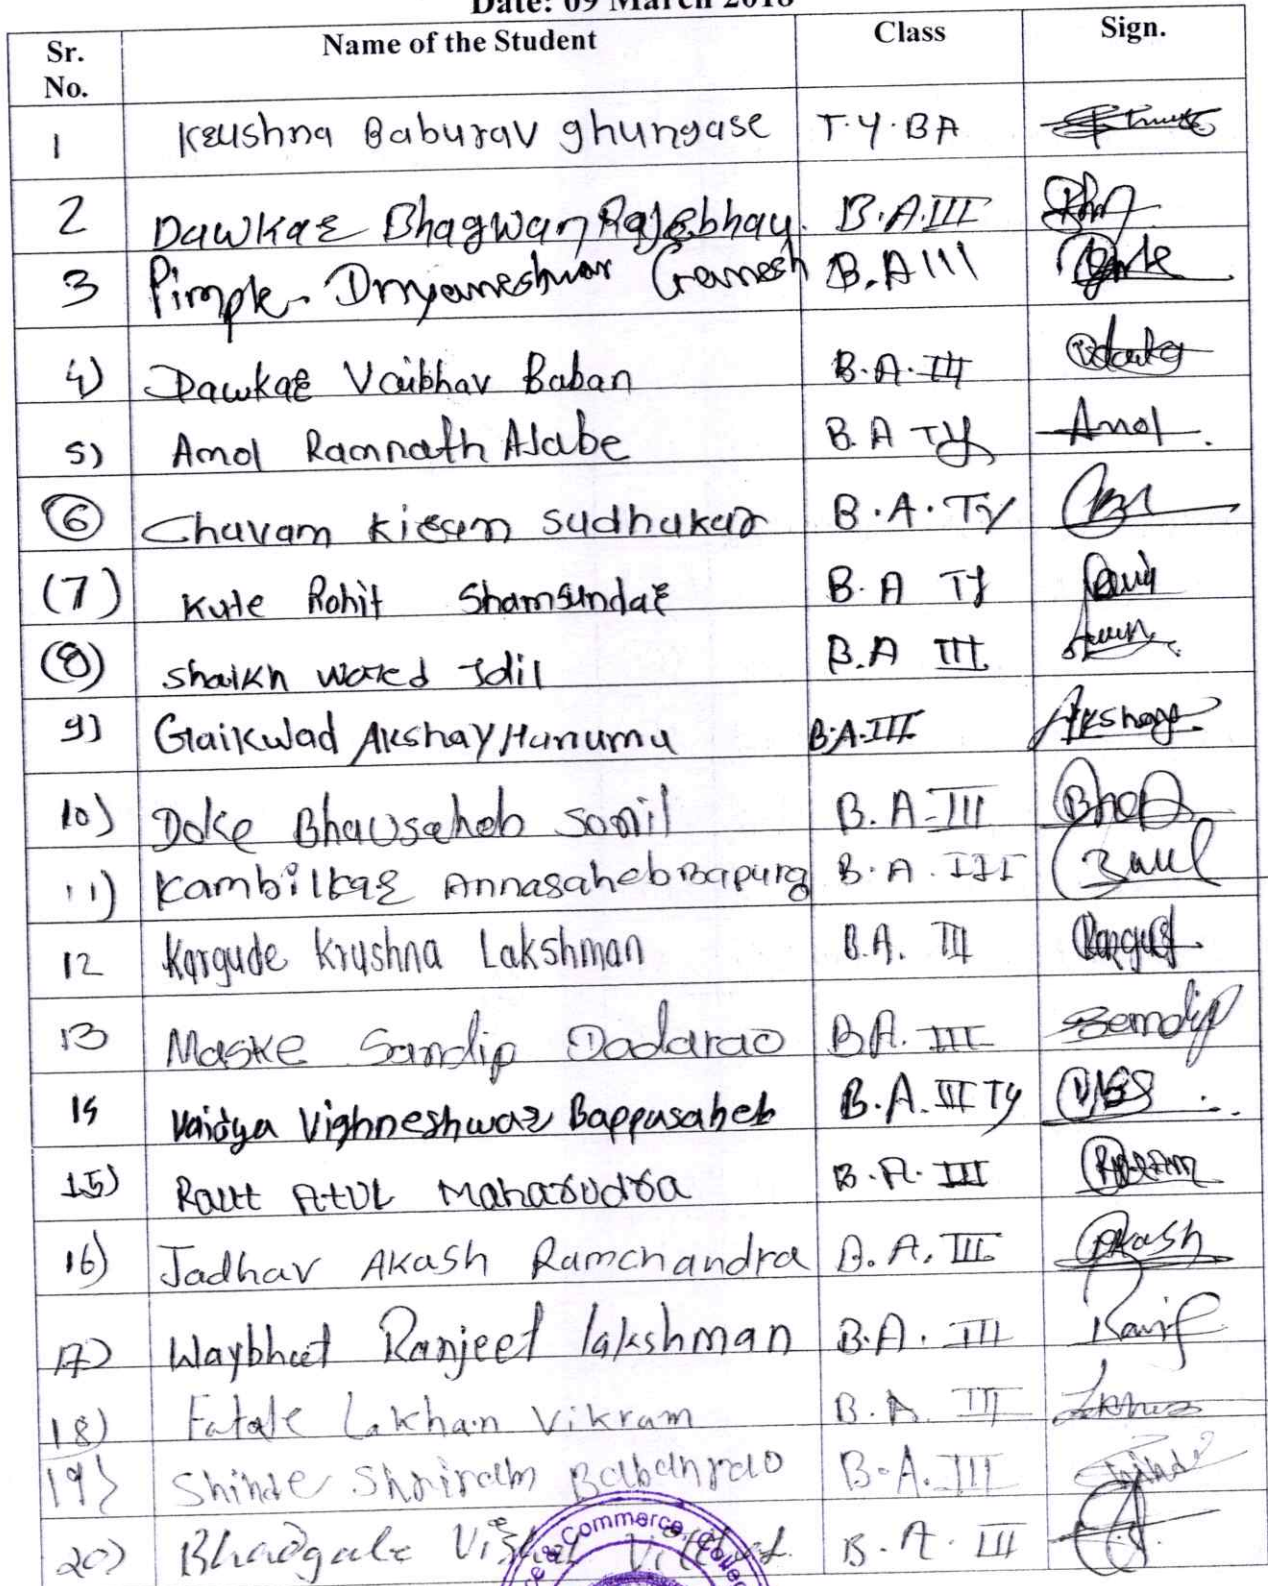 Date: 09 March 2018
Sr. No. Name of the Student Class Sign.
1 Krushna Baburav ghungase T.Y.BA
2 Dawkar Bhagwan Rajebhau. B.A.III
3 Pimple Dnyaneshwar Ganesh B.A III
4) Dawkar Vaibhav Baban B.A.III
5) Amol Ramnath Alabe B.A TY Amol.
6 Chavam Kiran Sudhakar B.A.TY
(7) Kute Rohit Shamsundar B.A TY
(8) Shaikh Idil B.A III
9) Gaikwad Akshay Hanuma B.A.III Akshay
10) Doke Bhausaheb B.A-III
11) Kambilkar Annasaheb Bapurq B.A.III
12 Kargude Krushna Lakshman B.A. III
13 Maske Sandip Dadarao B.A. III Sandip
14 Vaidya Vighneshwar Bappasaheb B.A.III TY
15) Raut Atul Maharudra B.A. III
16) Jadhav Akash Ramchandra B.A. III Akash
17) Waybhat Ranjeet lakshman B.A. III
18) Fatale Lakhan Vikram B.A. III
19) Shinde Shriram Babanrao B.A. III
20) Bhadgale Vishal B.A. III
& Commerce